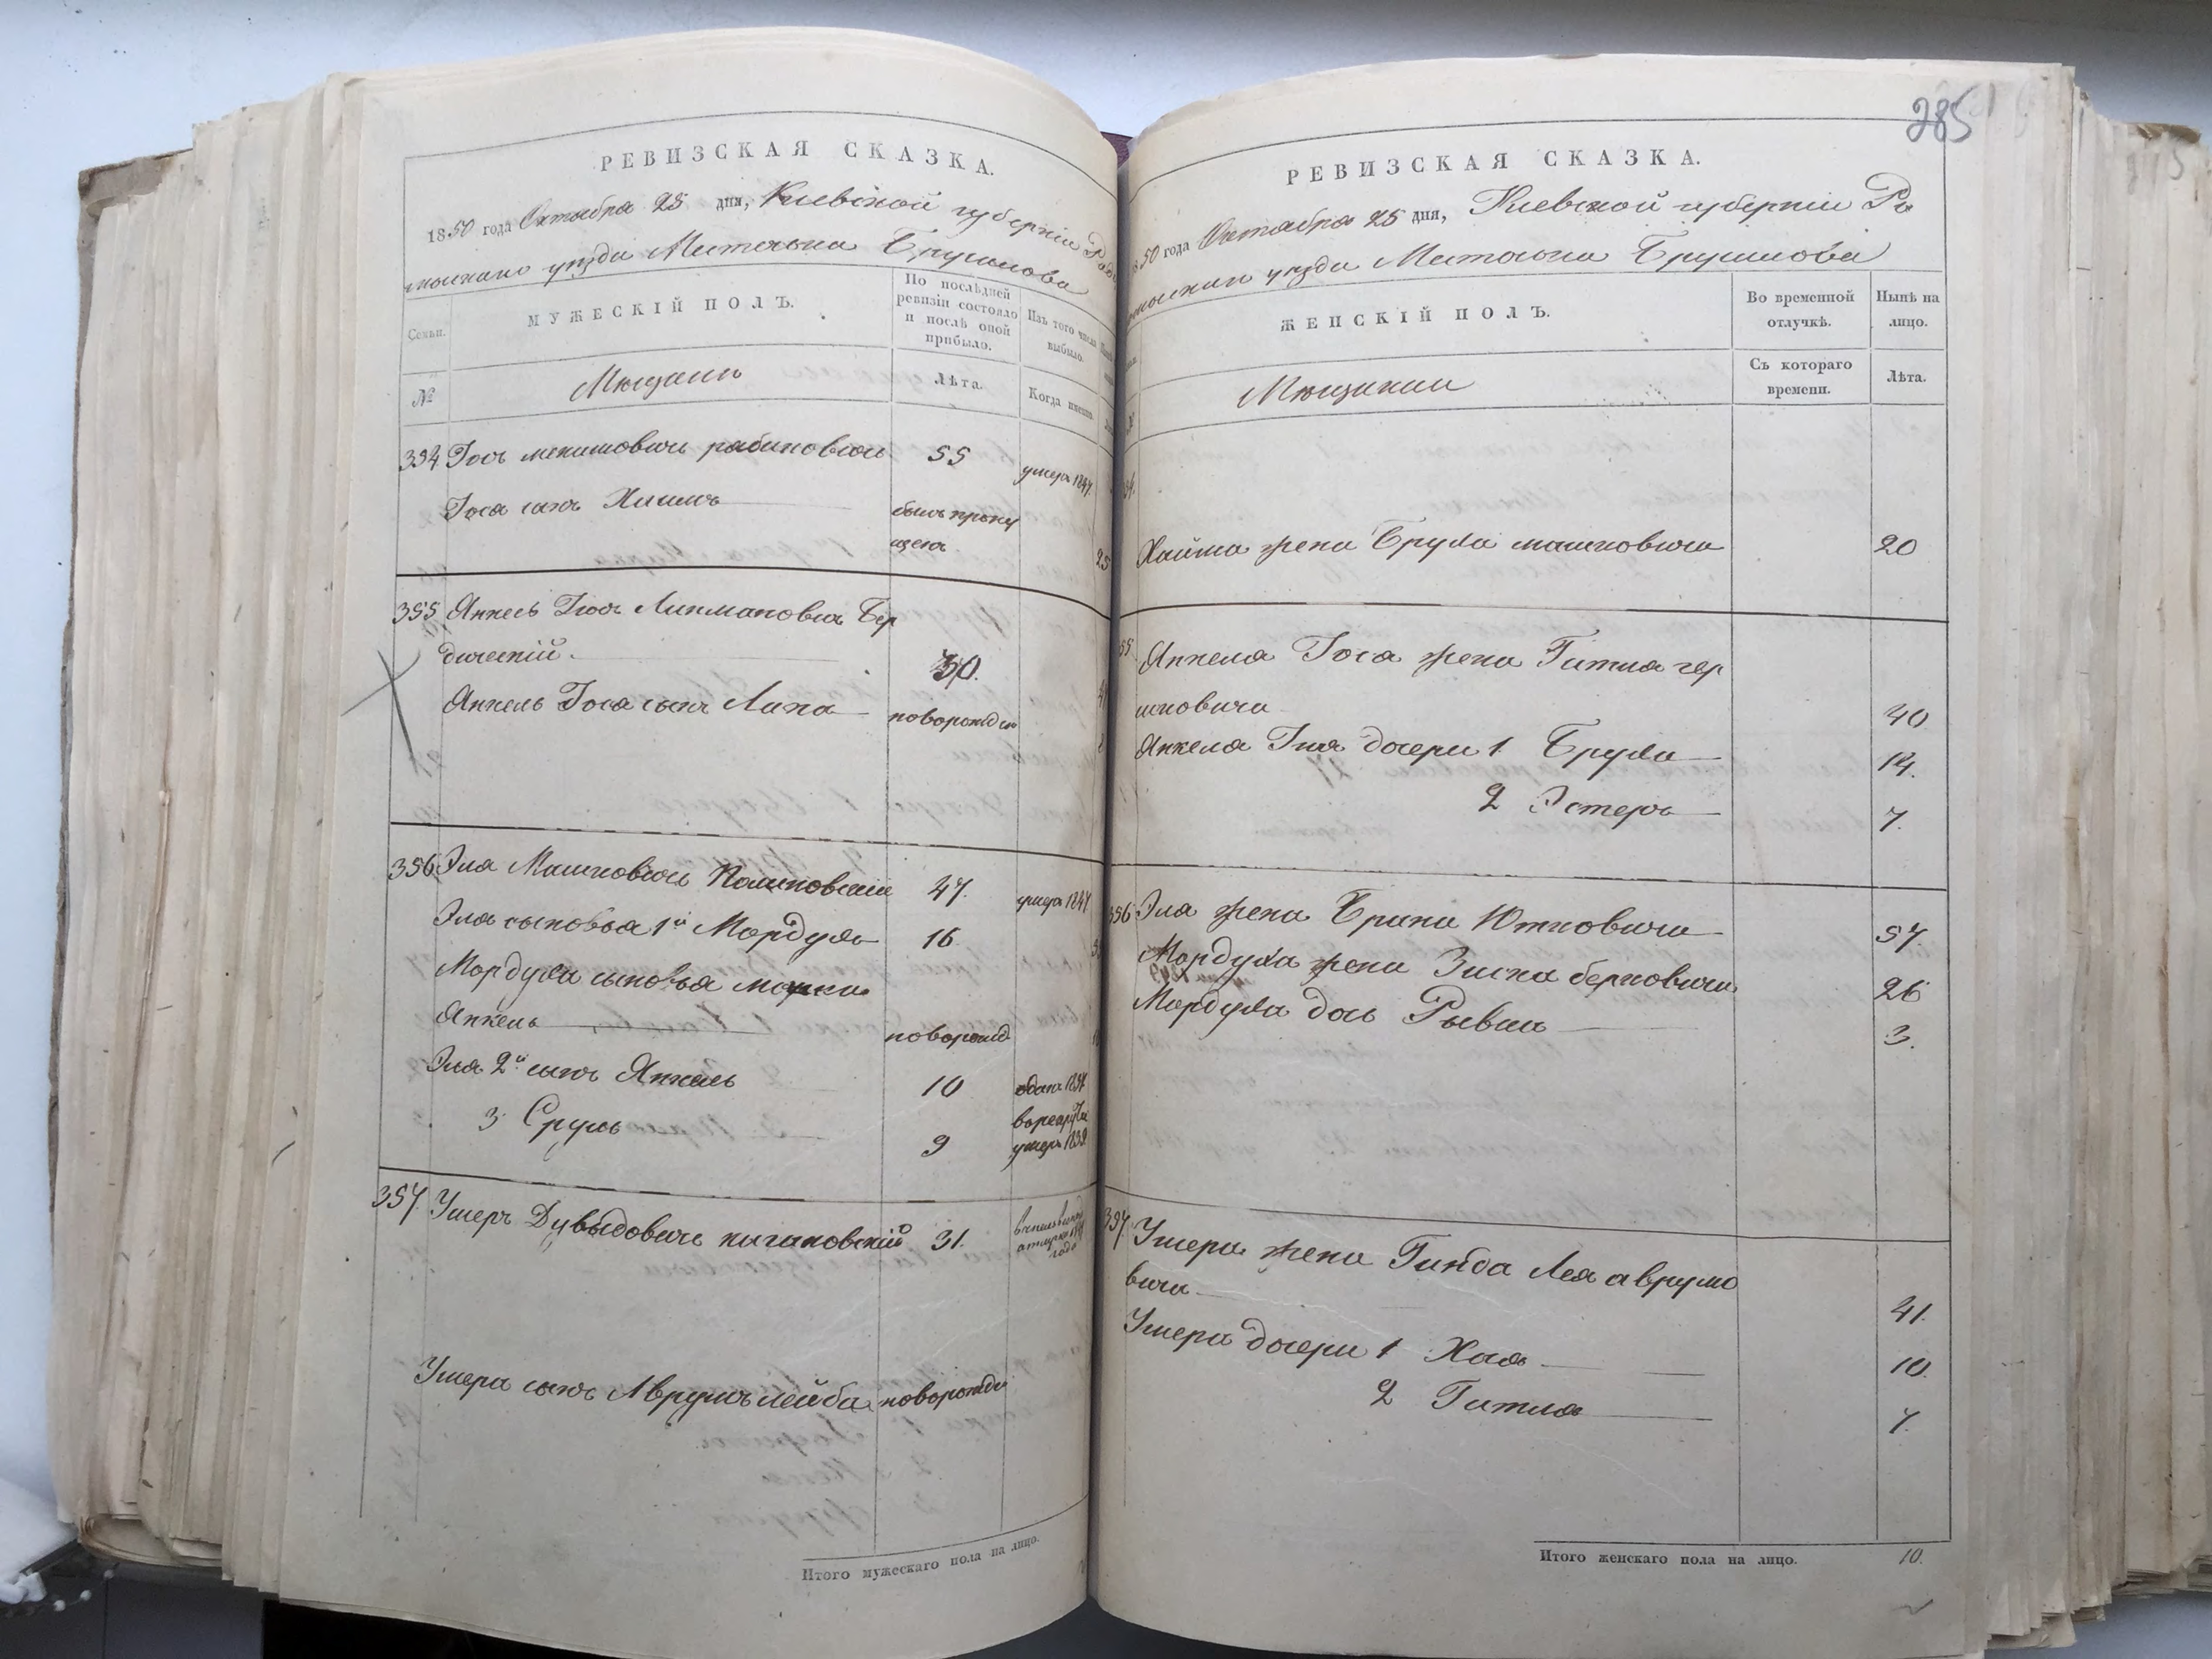 РЕВИЗСКАЯ СКАЗКА.
1850 года Октября 25 дня, Киевской губернiи Радо
мысльскаго уезда Местечка Брусилова
Семьи.
МУЖЕСКІЙ ПОЛЪ.
По послѣдней ревизіи состояло и послѣ оной прибыло.
Изъ того числа выбыло.
№
Мещане
Лѣта.
Когда именно
354 Іось мекишовичъ рабиновичъ 55 умеръ 1847.
Іося сынъ Хаимъ былъ пропу
щенъ 25
355 Янкель Іось Липмановичъ Бер
дическій. 30.
Янкель Іося сынъ Липа новорожден
356 Эля Машковичъ 47. умеръ 1847
Эля сыновья 1й Мордухъ 16
Мордуха сыновья
Янкель новорожд
Эля 2й сынъ Янкель 10 отданъ 1837
в рекруты
3 Сруль 9 умеръ 1839
357. Умеръ Дувыдовичъ кагановскій 31.
Умера сынъ Аврумъ лейба новорожде
Итого мужескаго пола на лицо.
285
РЕВИЗСКАЯ СКАЗКА.
50 года Октября 25 дня, Киевской губернiи Ра
мысльскаго уезда Местечка Брусилова
ЖЕНСКІЙ ПОЛЪ.
Во временной отлучкѣ.
Нынѣ на лицо.
Мещанки
Съ котораго времени.
Лѣта.
54.
Хаима жена Бруха машковичи 20
55 Янкеля Іося жена Гитля гер
шковичи 40
Янкеля Іося дочери 1 Бруха 14.
2 Эстеръ 7.
356 Эля жена Брана Ютковичи 57.
Мордуха жена Зиска берковичи 26
Мордуха дочь Рывка 3.
357. Умера жена Гинда Лея аврумо
вичи 41.
Умера дочери 1 Хая 10.
2 Гитля 7.
Итого женскаго пола на лицо. 10.